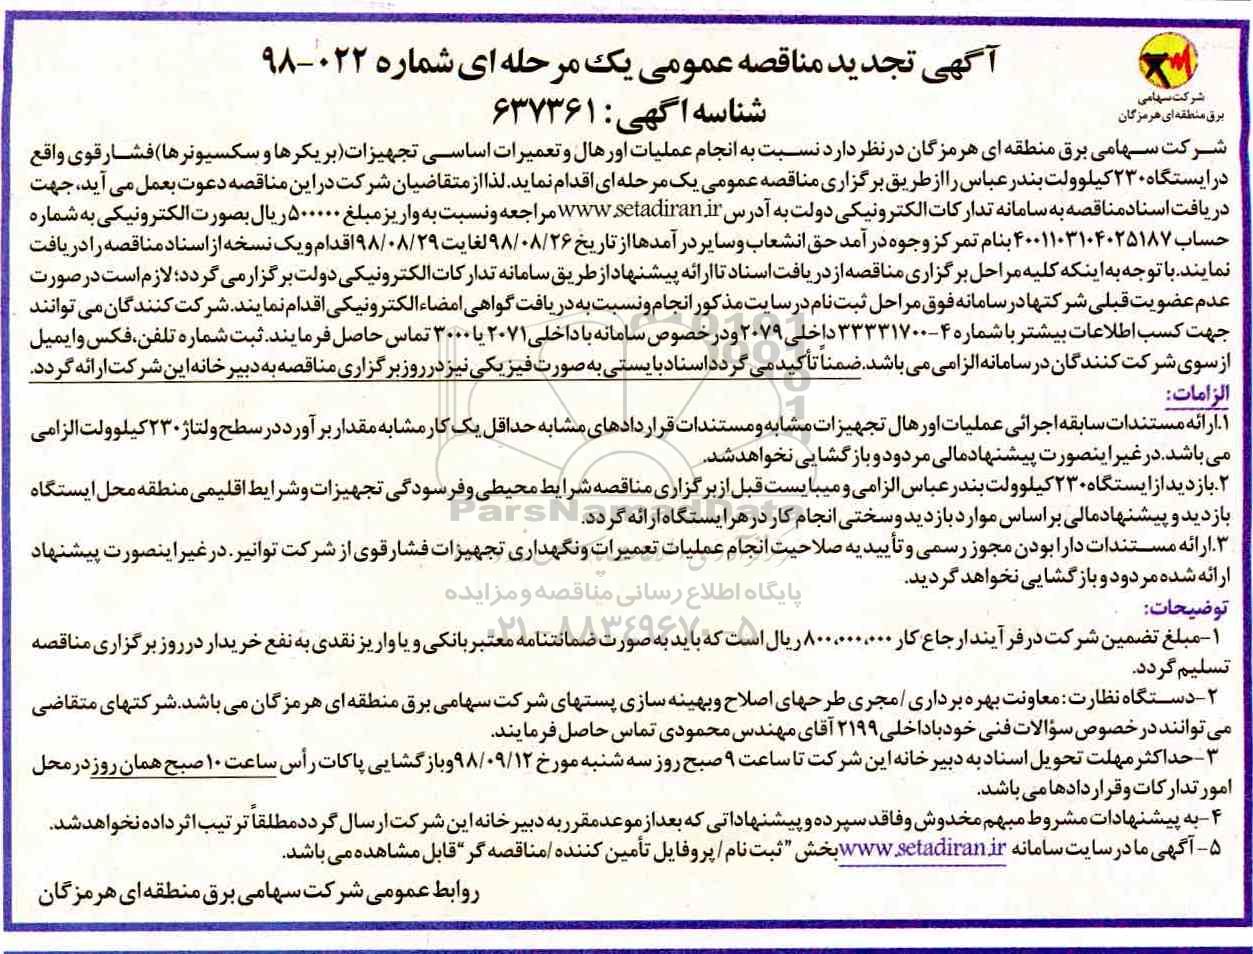 آگهی تجدید مناقصه عمومی یک مرحله ای شماره ۰۲۲-۹۸
شناسه آگهی: ۶۳۷۳۶۱
شرکت سهامی
برق منطقه ای هرمزگان
شرکت سهامی برق منطقه ای هرمزگان در نظر دارد نسبت به انجام عملیات اورهال و تعمیرات اساسی تجهیزات (بریکرها و سکسیونرها) فشار قوی واقع
در ایستگاه ۲۳۰ کیلوولت بندرعباس را از طریق برگزاری مناقصه عمومی یک مرحله ای اقدام نماید. لذا از متقاضیان شرکت در این مناقصه دعوت بعمل می آید، جهت
دریافت اسناد مناقصه به سامانه تدارکات الکترونیکی دولت به آدرس www.setadiran.ir مراجعه و نسبت به واریز مبلغ ۵۰۰۰۰۰ ریال بصورت الکترونیکی به شماره
حساب ۴۰۰۱۱۰۳۱۰۴۰۲۵۱۸۷ بنام تمرکز وجوه درآمد حق انشعاب و سایر درآمدها از تاریخ ۹۸/۰۸/۲۶ لغایت ۹۸/۰۸/۲۹ اقدام و یک نسخه از اسناد مناقصه را دریافت
نمایند. با توجه به اینکه کلیه مراحل برگزاری مناقصه از دریافت اسناد تا ارائه پیشنهاد از طریق سامانه تدارکات الکترونیکی دولت برگزار می گردد؛ لازم است در صورت
عدم عضویت قبلی شرکتها در سامانه فوق مراحل ثبت نام در سایت مذکور انجام و نسبت به دریافت گواهی امضاء الکترونیکی اقدام نمایند. شرکت کنندگان می توانند
جهت کسب اطلاعات بیشتر با شماره ۴-۳۳۳۳۱۷۰۰ داخلی ۲۰۷۹ و در خصوص سامانه با داخلی ۲۰۷۱ یا ۳۰۰۰ تماس حاصل فرمایند. ثبت شماره تلفن، فکس و ایمیل
از سوی شرکت کنندگان در سامانه الزامی می باشد. ضمناً تأکید می گردد اسناد بایستی به صورت فیزیکی نیز در روز برگزاری مناقصه به دبیرخانه این شرکت ارائه گردد.
الزامات:
۱. ارائه مستندات سابقه اجرائی عملیات اورهال تجهیزات مشابه و مستندات قراردادهای مشابه حداقل یک کار مشابه مقدار برآورد در سطح ولتاژ ۲۳۰ کیلوولت الزامی
می باشد. در غیر اینصورت پیشنهاد مالی مردود و بازگشایی نخواهد شد.
۲. بازدید از ایستگاه ۲۳۰ کیلوولت بندرعباس الزامی و میبایست قبل از برگزاری مناقصه شرایط محیطی و فرسودگی تجهیزات و شرایط اقلیمی منطقه محل ایستگاه
بازدید و پیشنهاد مالی بر اساس موارد بازدید و سختی انجام کار در هر ایستگاه ارائه گردد.
۳. ارائه مستندات دارا بودن مجوز رسمی و تأیید به صلاحیت انجام عملیات تعمیرات و نگهداری تجهیزات فشار قوی از شرکت توانیر. در غیر اینصورت پیشنهاد
ارائه شده مردود و بازگشایی نخواهد گردید.
توضیحات:
۱-مبلغ تضمین شرکت در فرآیند ارجاع کار ۸۰۰,۰۰۰,۰۰۰ ریال است که باید به صورت ضمانتنامه معتبر بانکی و یا واریز نقدی به نفع خریدار در روز برگزاری مناقصه
تسلیم گردد.
۲-دستگاه نظارت: معاونت بهره برداری / مجری طرحهای اصلاح و بهینه سازی پستهای شرکت سهامی برق منطقه ای هرمزگان می باشد. شرکتهای متقاضی
می توانند در خصوص سؤالات فنی خود با داخلی ۲۱۹۹ آقای مهندس محمودی تماس حاصل فرمایند.
۳-حداکثر مهلت تحویل اسناد به دبیرخانه این شرکت تا ساعت ۹ صبح روز سه شنبه مورخ ۹۸/۰۹/۱۲ و بازگشایی پاکات رأس ساعت ۱۰ صبح همان روز در محل
امور تدارکات و قراردادها می باشد.
۴-به پیشنهادات مشروط مبهم مخدوش و فاقد سپرده و پیشنهاداتی که بعد از موعد مقرر به دبیرخانه این شرکت ارسال گردد مطلقاً ترتیب اثر داده نخواهد شد.
۵- آگهی ما در سایت سامانه www.setadiran.ir بخش "ثبت نام / پروفایل تأمین کننده / مناقصه گر" قابل مشاهده می باشد.
روابط عمومی شرکت سهامی برق منطقه ای هرمزگان
ParsNamadData
پایگاه اطلاع رسانی مناقصه و مزایده
۰۲۱-۸۸۳۴۹۶۷۰-۵